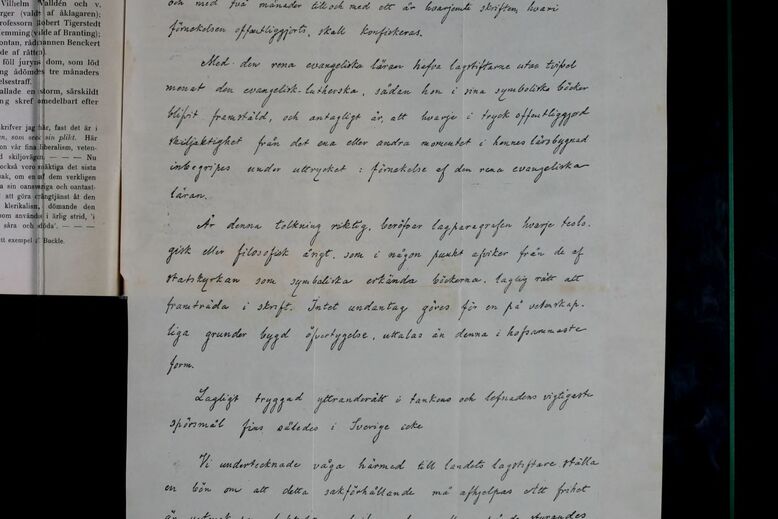 Vilhelm Valldén och v.
rger (vald af åklagaren);
rofessorn Robert Tigerstedt
emming (valde af Branting);
ontan, rådmannen Benckert
de af rätten).
föll juryns dom, som löd
ng ådömdes tre månaders
elsestraff.
allade en storm, särskildt
ng skref omedelbart efter
krifver jag här, fast det är i
en, som sen sin plikt. Här
on vår fina liberalism, veten-
d skiljovägen. — — — Nu
också voro mäktiga det sista
bak, om en af dem verkligen
a sin oansvariga och oantast-
att göra trångtjänst åt den
klerikalism, dömande den
om användes i ärlig strid, 'i
såra och döda'. — — —
tt exempel af Buckle.
och med två månader till och med ett år hvarjemte skriften, hvari
förnekelsen offentliggjorts, skall konfiskeras.
Med den rena evangeliska läran hafva lagstiftarne utan tvifvel
menat den evangelisk-lutherska, sådan hon i sina symboliska böcker
blifvit framstäld, och antagligt är, att hvarje i tryck offentliggjord
skiljaktighet från det ena eller andra momentet i hennes lärobyggnad
inbegripes under uttrycket: förnekelse af den rena evangeliska
läran.
Är denna tolkning riktig, beröfvar lagparagrafen hvarje teolo-
gisk eller filosofisk åsigt, som i någon punkt afviker från de af
statskyrkan som symboliska erkända böckerna, laglig rätt att
framträda i skrift. Intet undantag göres för en på vetenskap-
liga grunder bygd öfvertygelse, uttalas än denna i hofsammaste
form.
Lagligt tryggad yttranderätt i tankens och lefnadens vigtigaste
spörsmål fins således i Sverige icke
Vi undertecknade våga härmed till landets lagstiftare ställa
en bön om att detta sakförhållande må afhjelpas Att frihet